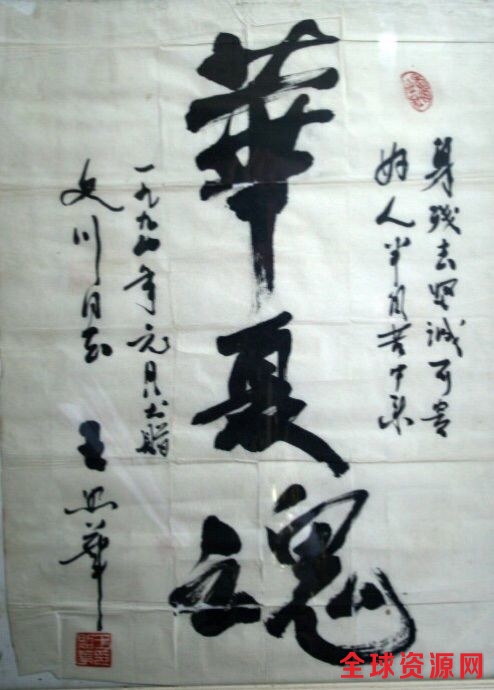 身残志坚诚可贵
好人半自苦中来
華夏魂
一九九四年元月书赠
川同志
王照華
全球资源网